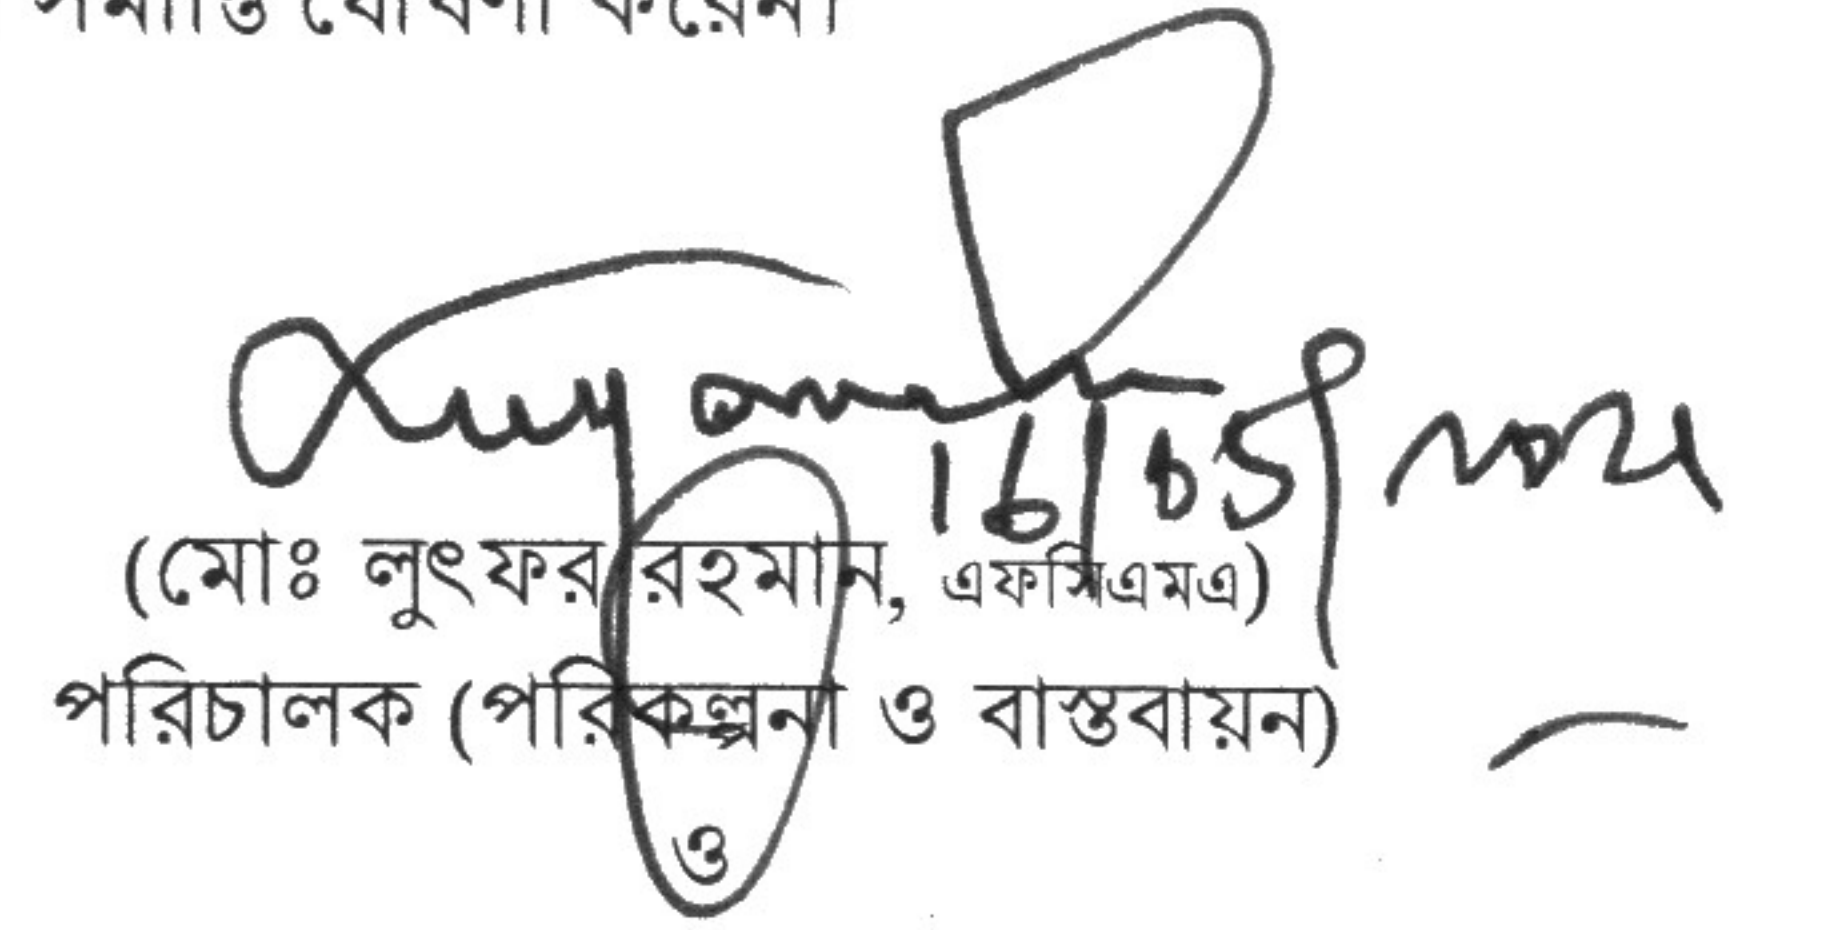 সমাপ্তি ঘোষণা করেন।
16/05/2024
(মোঃ লুৎফর রহমান, এফসিএমএ)
পরিচালক (পরিকল্পনা ও বাস্তবায়ন)
ও